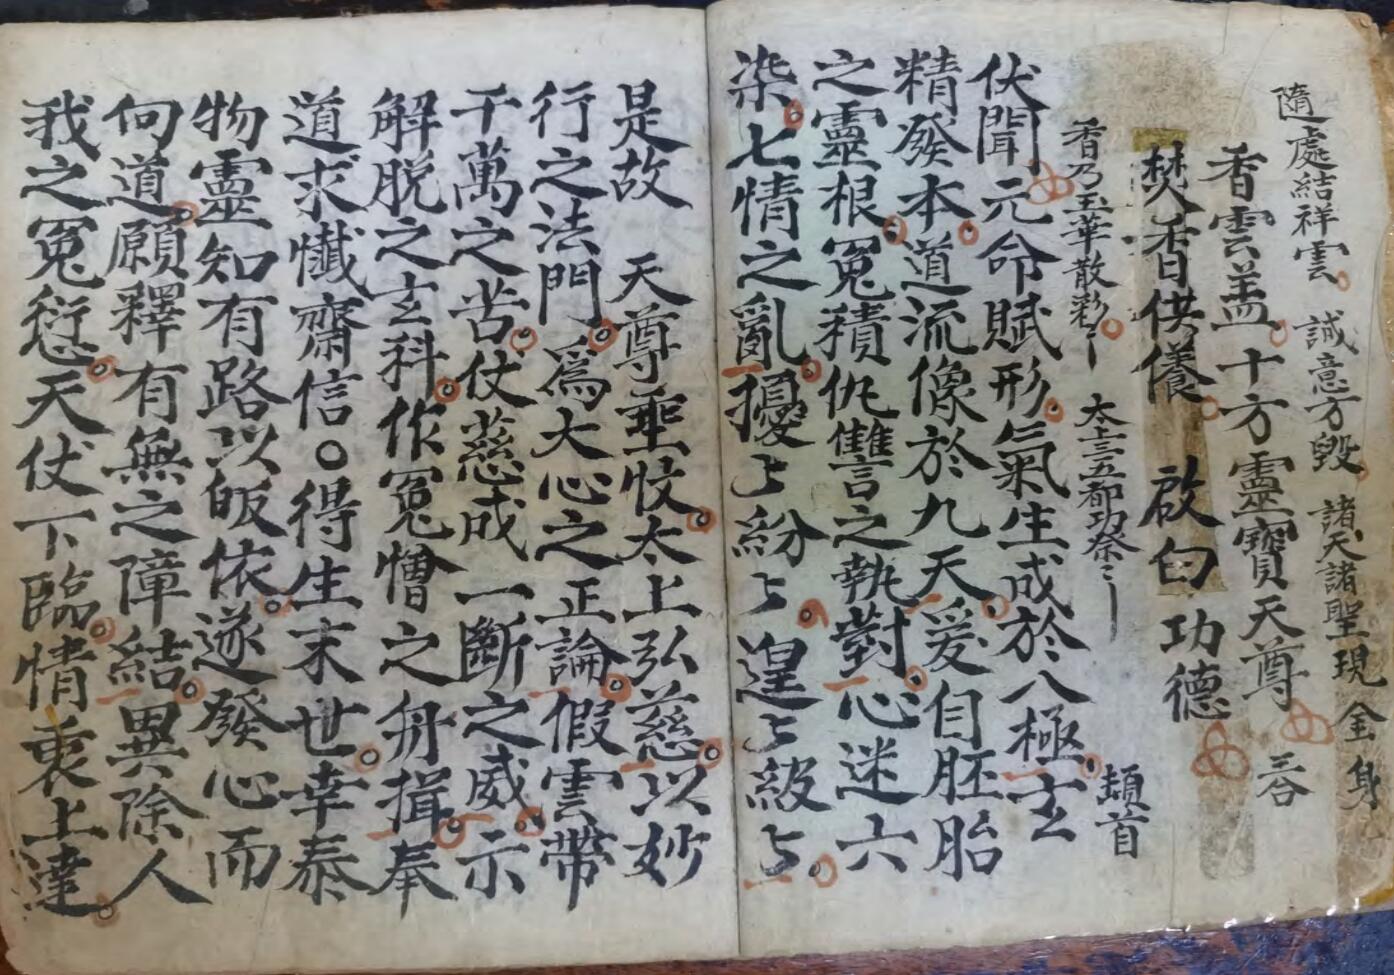 隨處結祥雲。誠意方殷。諸天諸聖現全身
香雲盖。十方靈寶天尊 三谷
焚香供養 啟白功德
香乃玉華散彩 太上三五都功祭 頴首
伏聞元命賦形。氣生成於八極。玄
精發本。道流像於九天。爰自胚胎
之靈根。冤積仇讐之執對。心迷六
染。七情之亂。擾〻紛〻。遑〻級〻。
是故 天尊垂忟。太上弘慈。以妙
行之法門。爲大心之正論。假雲帶
千萬之苦。仗慈成一斷之威。示
解脱之玄科。作冤憎之舟揖。奉
道求懺齋信〇得生末世。幸泰
物靈知有路以皈依。遂發心而
向道。願釋有無之障結。異除人
我之冤愆。天仗下臨。情衷上達。